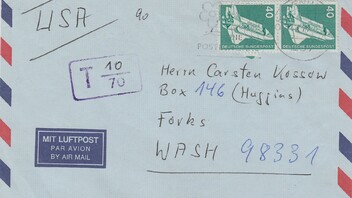 USA
90
POST
40
40
DEUTSCHE BUNDESPOST
DEUTSCHE BUNDESPOST
T 10/70
Herrn Carsten Kossow
Box 146 (Huggins)
Forks
WASH 98331
MIT LUFTPOST
PAR AVION
BY AIR MAIL